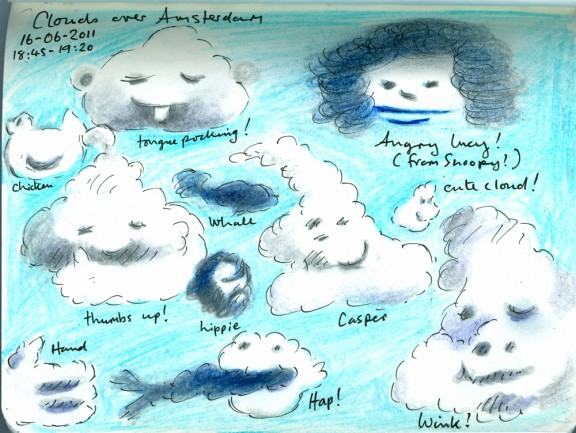 Clouds over Amsterdam
16-06-2011
18:45-19:20
tongue pocking!
Angry Lucy!
(from Snoopy!)
chicken
Whale
cute cloud!
thumbs up!
hippie
Casper
Hand
Hap!
Wink!